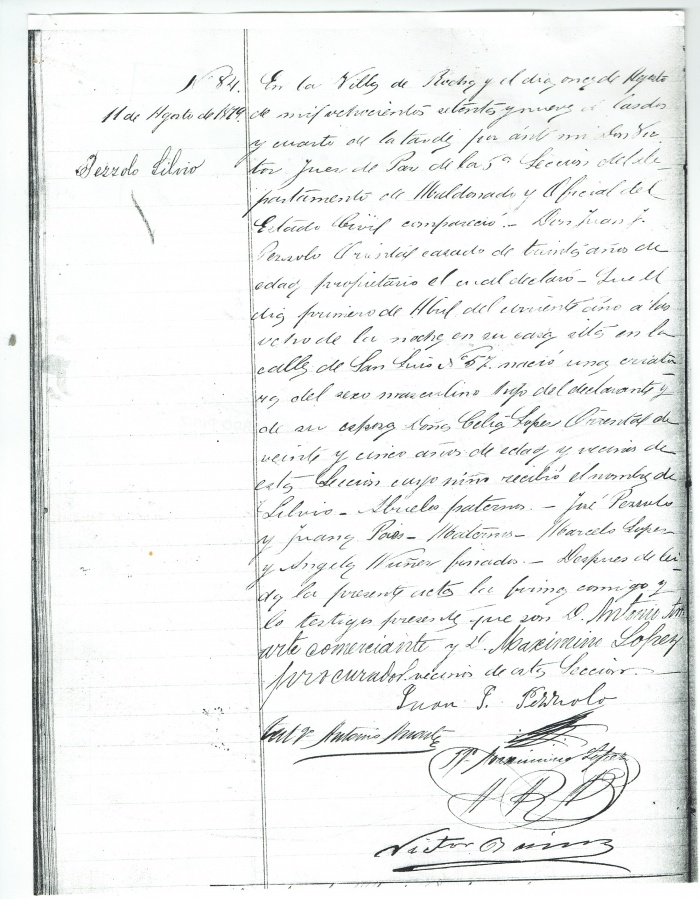 Nº 84.
11 de Agosto de 1879
Pezzolo Silvio
En la Villa de Rocha y el dia once de Agosto
de mil ochocientos setenta y nueve á las dos
y cuarto de la tarde por ánte mi Don Vic
tor Juez de Paz de la 5ª Seccion del de
partamento de Maldonado y Oficial del
Estado Civil compareció.- Don Juan P.
Pezzolo Oriental casado de treinta años de
edad propietario el cual declaró - Que el
dia primero de Abril del corriente año á las
ocho de la noche en su casa sita en la
calle de San Luis Nº 57. nació una criatu
ra del sexo masculino hijo del declarante y
de su esposa Doña Celia Lopez Oriental de
veinte y cinco años de edad y vecina de
esta Seccion cuyo niño recibió el nombre de
Silvio - Abuelos paternos. - José Pezzolo
y Juana - Maternos - Marcelo Lopez
y Angela Nuñez finados. - Despues de lei
da la presente acta la firma comigo y
lo testigos presente que son D. Antonio
arte comerciante y D. Maximino Lopez
procurador vecinos de esta Seccion.-
Juan P. Pezzolo
Antonio
Tº Maximino Lopez
Victor